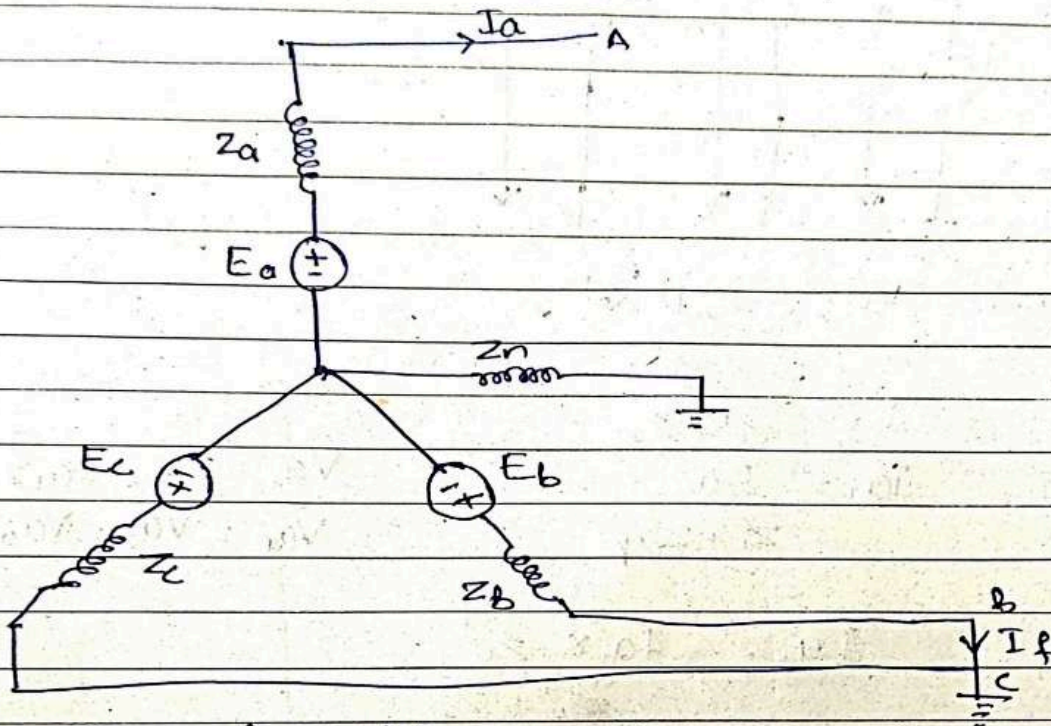 Ia
A
Za
+
-
Ea
Zn
Ec
Eb
+
- +
Zc
Zb
b
If
c